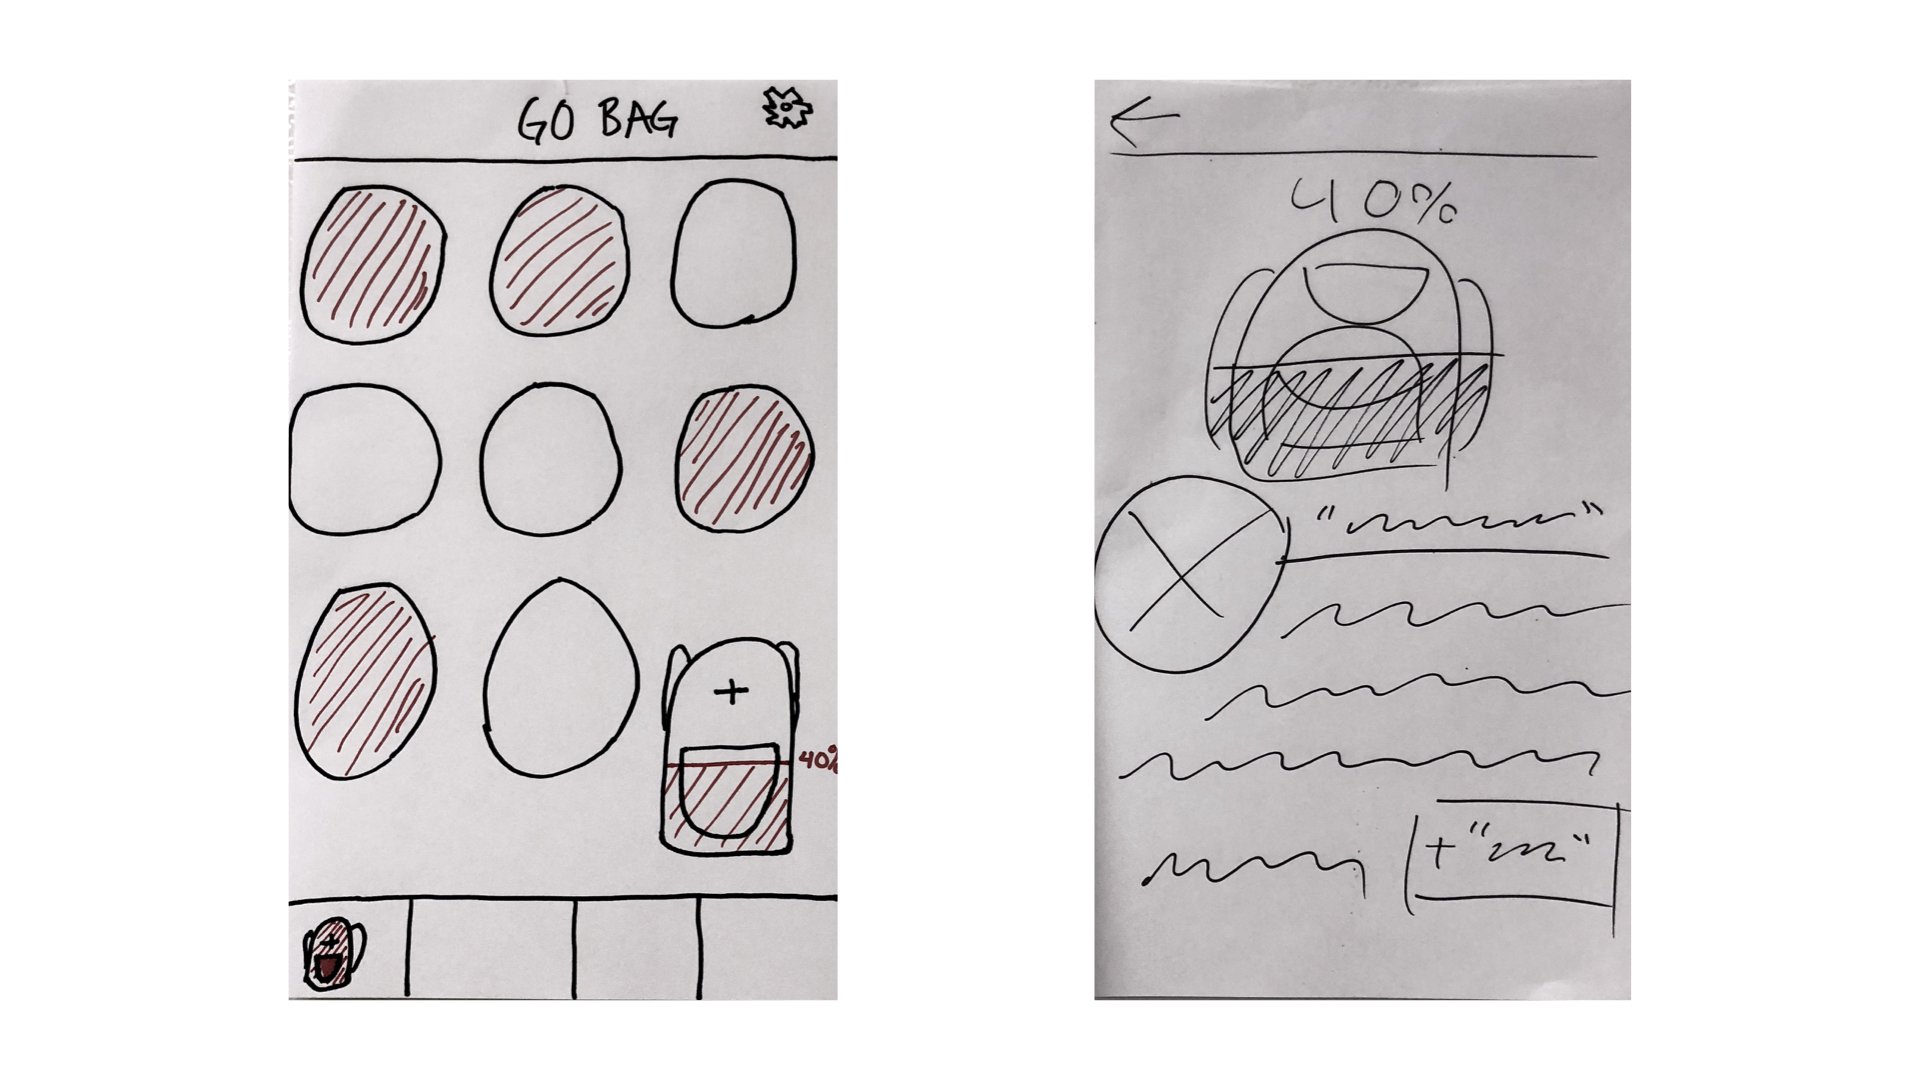 GO BAG
+
40%
+
40%
+